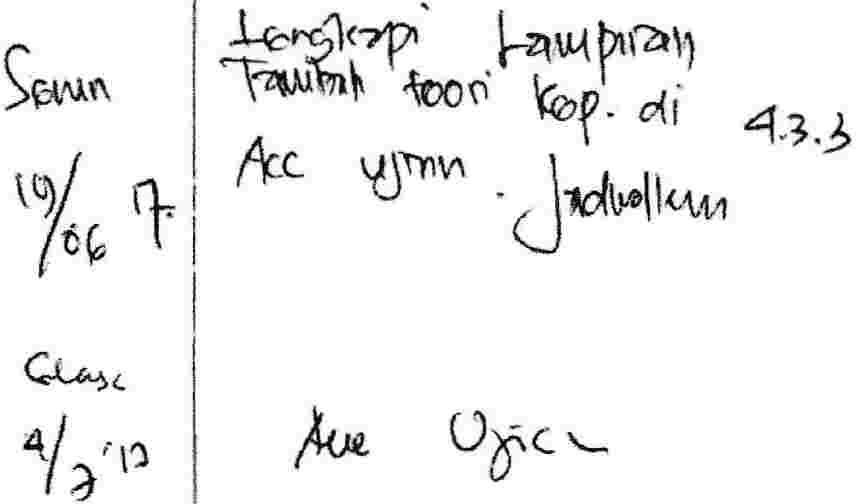 Senin
19/06 17.
Lengkapi Lampiran
Tambah teori Kep. di 4.3.3
Acc ujian. Jadwalkan
Selasa
4/7 '17
Acc Ujian